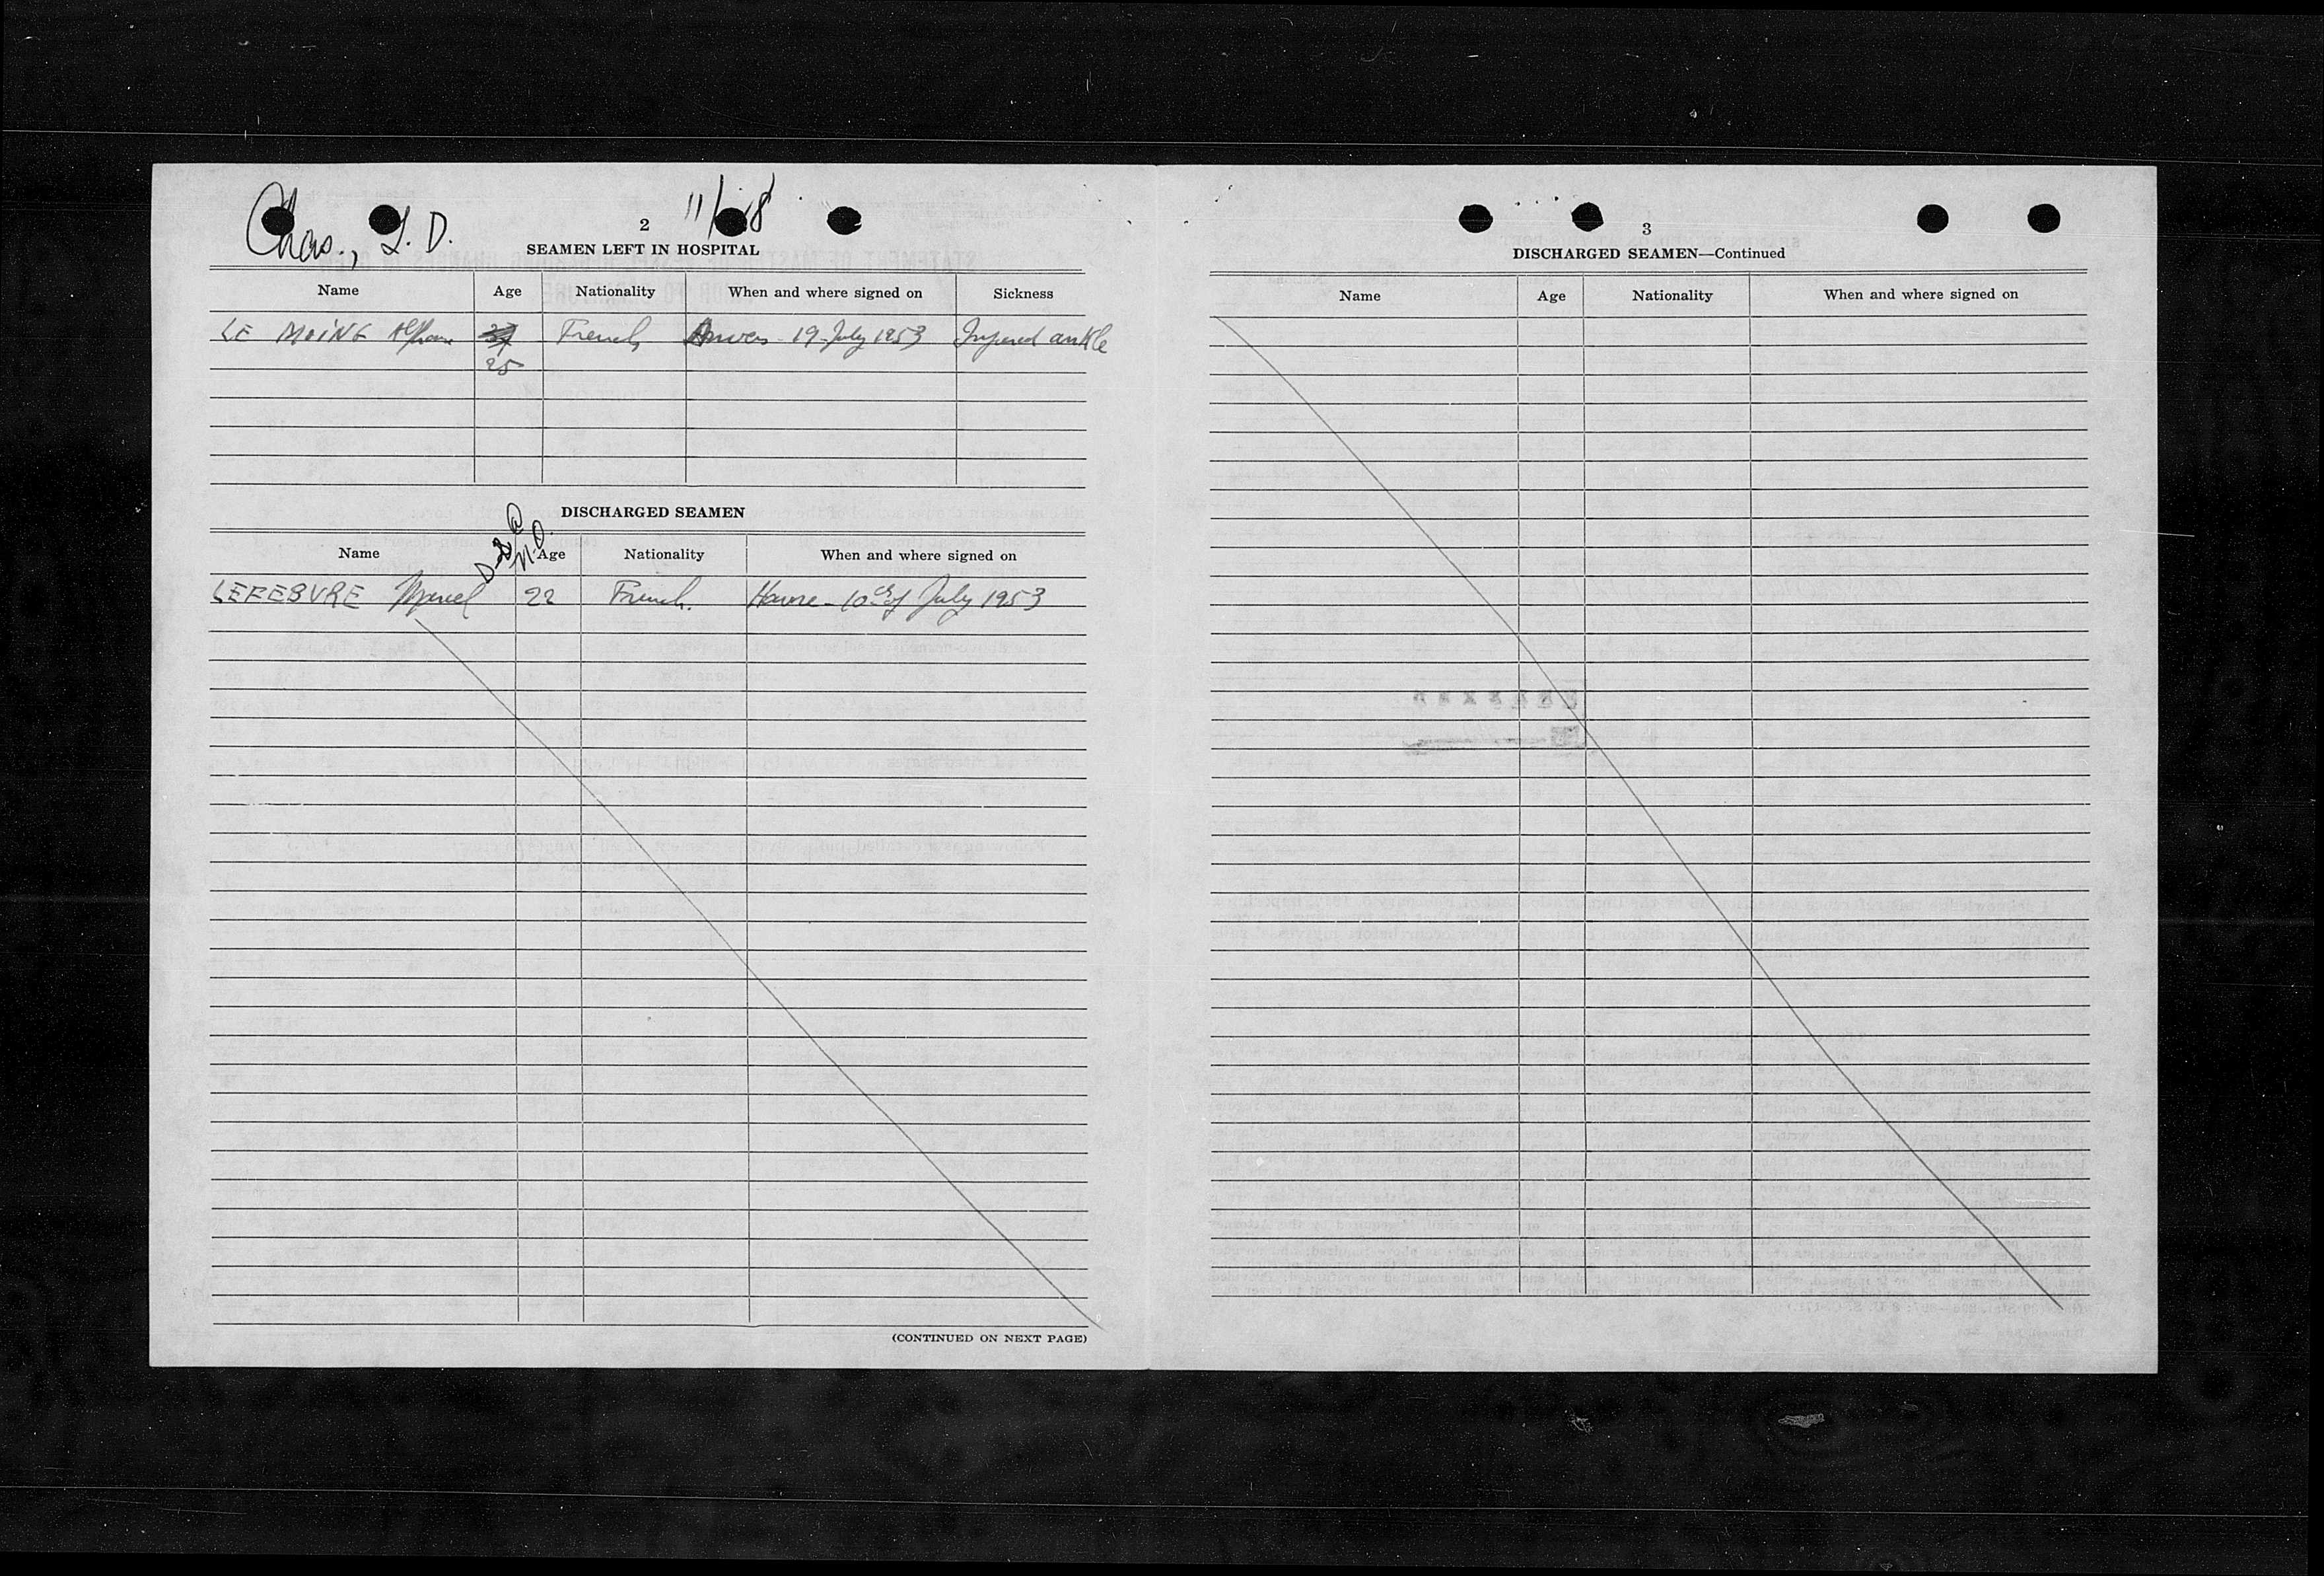 Chas., I. D.
2
11/18
SEAMEN LEFT IN HOSPITAL
Name Age Nationality When and where signed on Sickness
LE MOING French Anvers 19 July 1953 Injured ankle
25
DISCHARGED SEAMEN
Name Age Nationality When and where signed on
LEFEBVRE Marcel 22 French. Havre - 10 of July 1953
(CONTINUED ON NEXT PAGE)
3
DISCHARGED SEAMEN—Continued
Name Age Nationality When and where signed on